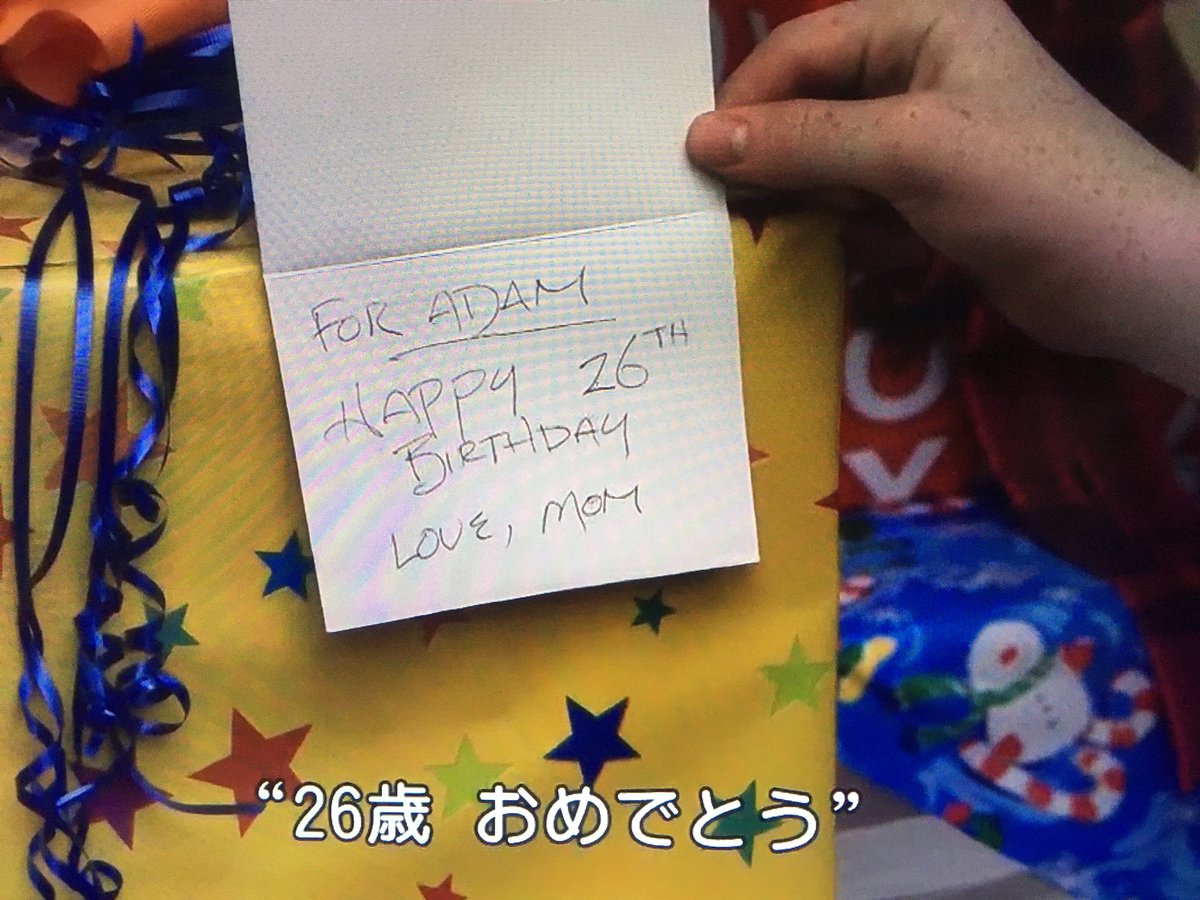 FOR ADAM
HAPPY 26TH
BIRTHDAY
LOVE, MOM
“26歳 おめでとう”